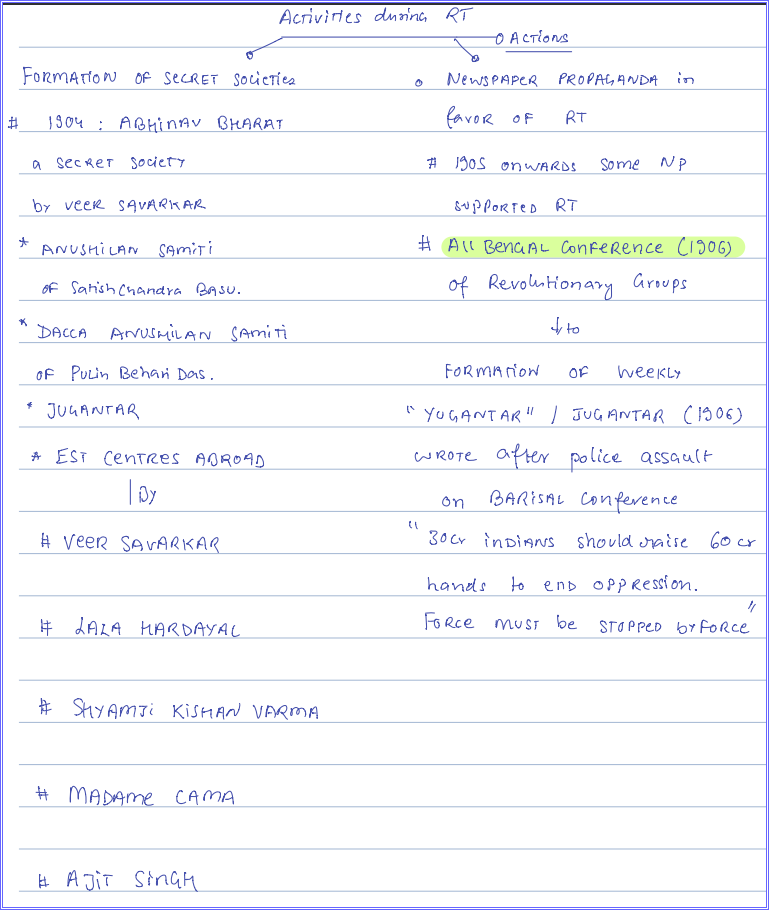 Activities during RT
o ACTIONS
FORMATION OF SECRET SOCIETIES
# 1904 : ABHINAV BHARAT
a SECRET SOCIETY
by VEER SAVARKAR
* ANUSHILAN SAMITI
OF Satish Chandra BASU.
* DACCA ANUSHILAN SAMITI
OF Pulin Behari Das.
* JUGANTAR
* EST CENTRES ABROAD
| By
# VEER SAVARKAR
# LALA HARDAYAL
# SHYAMJI KISHAN VARMA
# MADAME CAMA
# AJIT SINGH
o NEWSPAPER PROPAGANDA in
favor OF RT
# 1905 ONWARDS some NP
supported RT
# All BENGAL CONFERENCE (1906)
of Revolutionary Groups
↓ to
FORMATION OF WEEKLY
"YUGANTAR" / JUGANTAR (1906)
WROTE after police assault
on BARISAL Conference
"30cr INDIANS should raise 60 cr
hands to END OPPRESSION.
FORCE MUST be STOPPED by FORCE"